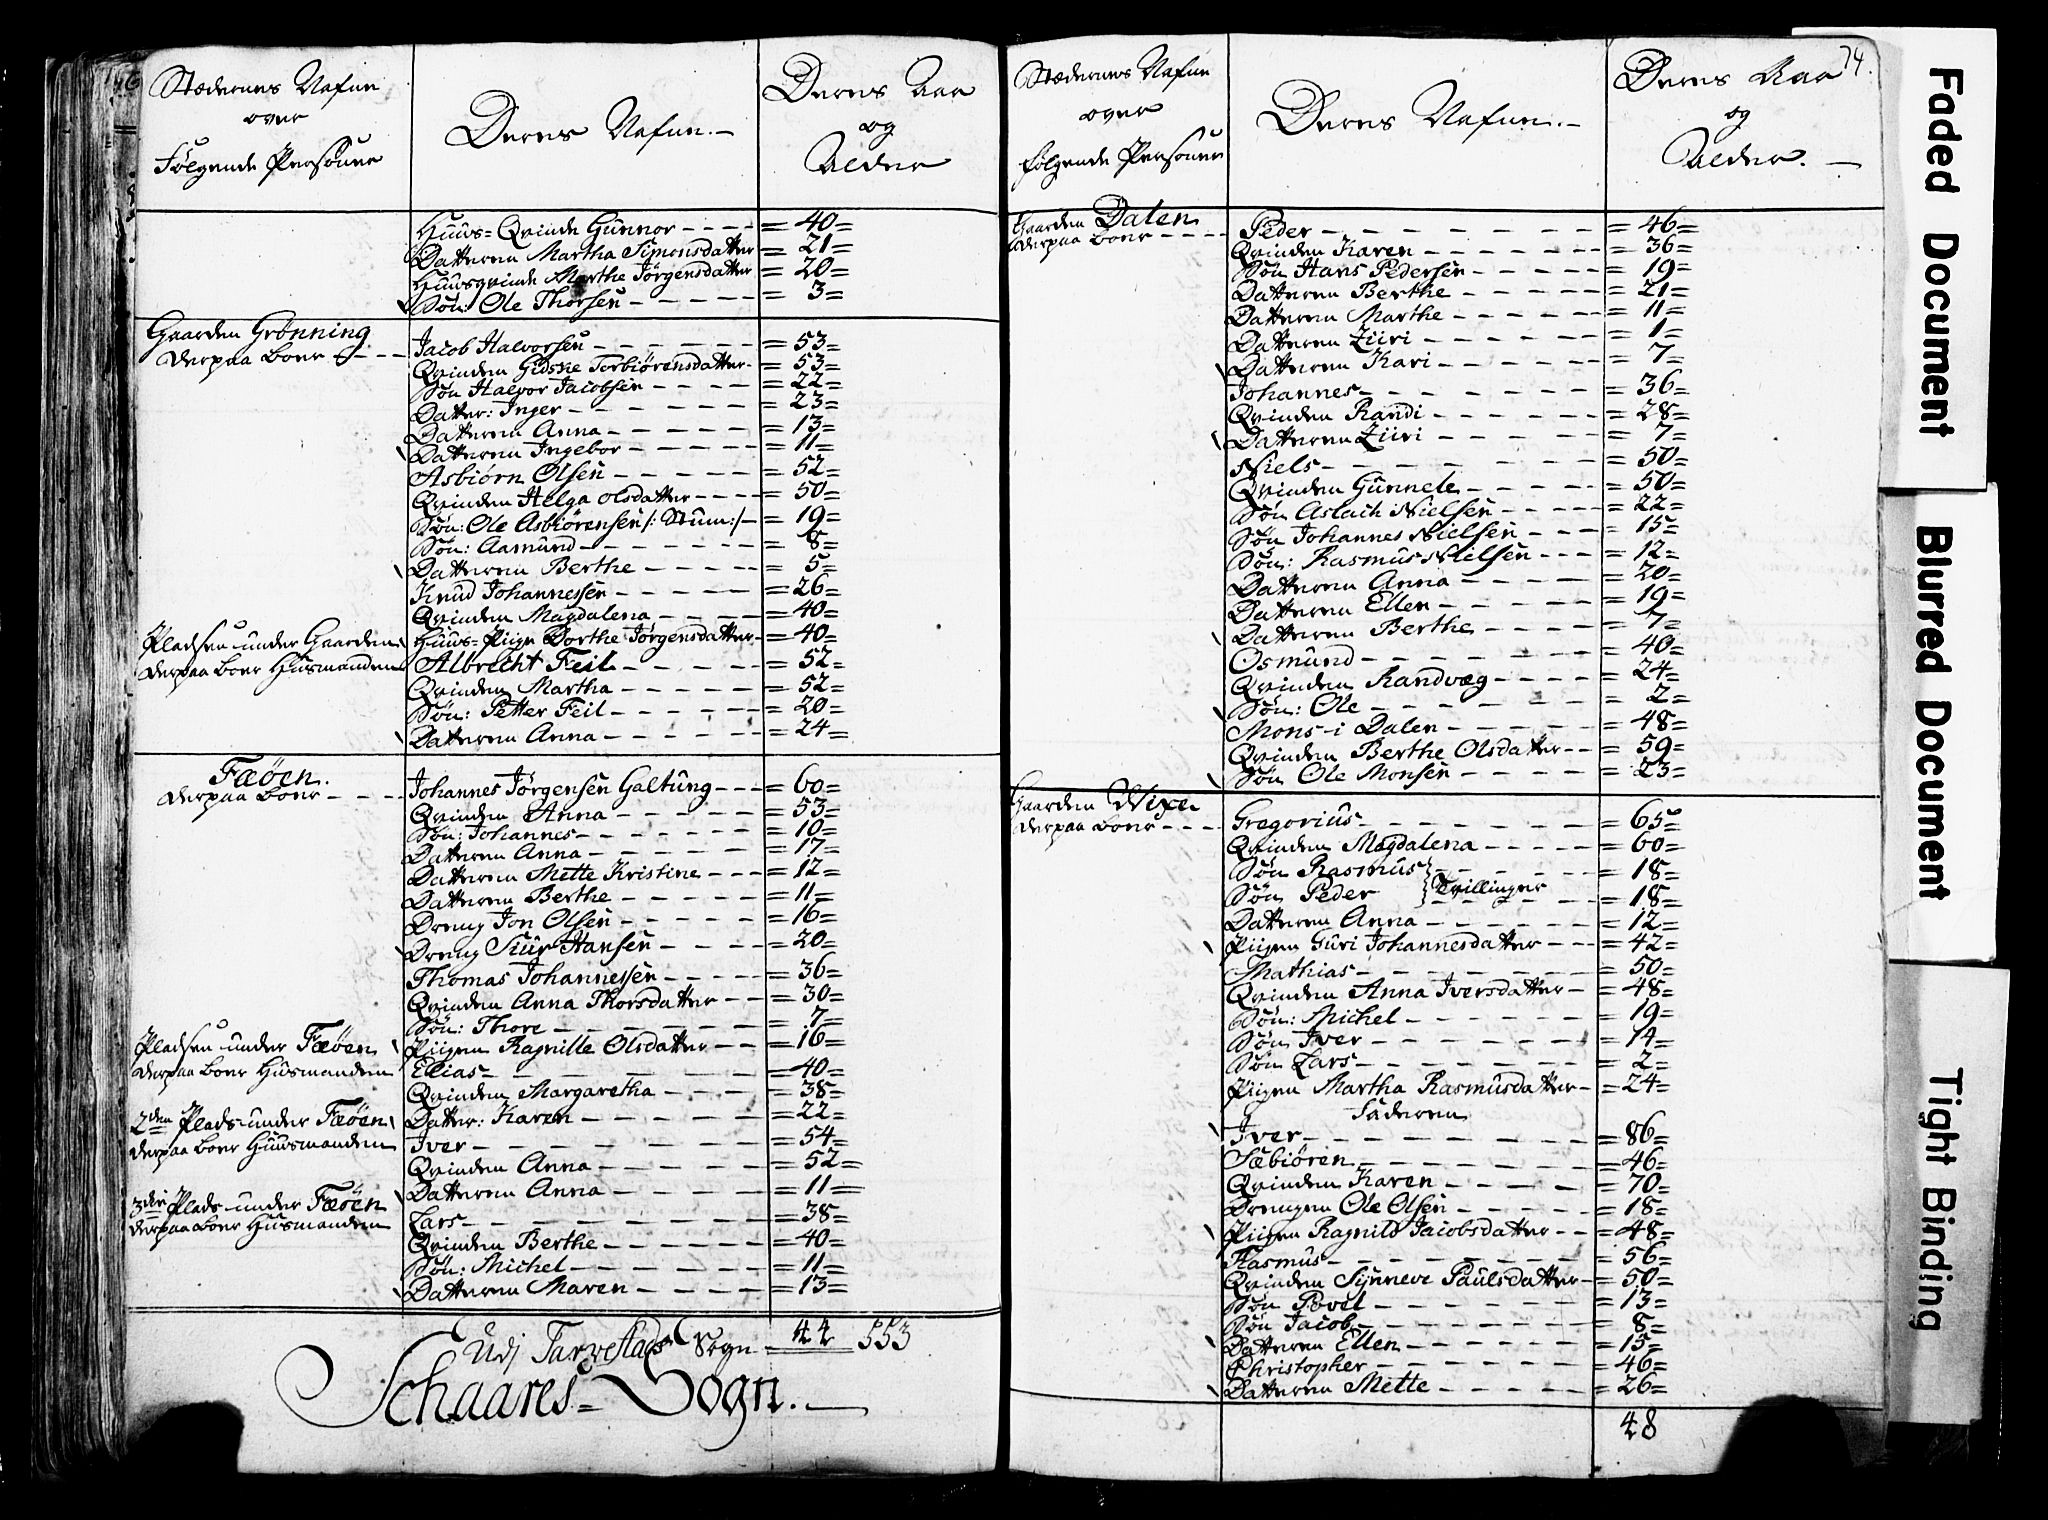 Stædernes Nafne
over
Følgende Persohner
Deres Nafne. –
Deres Aar
og
Alder
Huus=Qvinde Gunnor – – – – = 40 =
Datteren Martha Simonsdatter = 21 =
Huusqvinde Marthe Jörgensdatter = 20 =
Søn: Ole Thorsen – – – – – = 3 =
Gaarden Grönning
derpaa boer – – – –
Jacob Halvorsen – – – – – = 53 =
Qvinden Gidske Torbiörensdatter – = 53 =
Søn Halvor Jacobsen – – – – = 22 =
Datter: Inger – – – – – – = 23 =
Datteren Anna – – – – – = 13 =
Datteren Ingebor – – – – – = 11 =
Asbiörn Olsen – – – – – = 52 =
Qvinden Helga Olsdatter – – – – = 50 =
Søn: Ole Asbiörensen /: Stum :/ – = 19 =
Søn: Aamund – – – – – – = 8 =
Datteren Berthe – – – – – = 5 =
Knud Johannessen – – – – – = 26 =
Qvinden Magdalena – – – – – = 40 =
Huus=Piige Dorthe Jörgensdatter – = 40 =
Pladsen under Gaarden
derpaa boer Husmanden
Albrecht Feil – – – – – = 52 =
Qvinden Martha – – – – – = 52 =
Søn: Petter Feil – – – – – = 20 =
Datteren Anna – – – – – = 24 =
Fæøen.
derpaa boer – – – –
Johannes Jörgensen Galtung – – – = 60 =
Qvinden Anna – – – – – = 53 =
Søn: Johannes – – – – – – = 10 =
Datteren Anna – – – – – – = 17 =
Datteren Mette Kristine – – – = 12 =
Datteren Berthe – – – – – = 11 =
Dreng Jon Olsen – – – – – = 16 =
Dreng Siur Hansen – – – – = 20 =
Thomas Johannessen – – – – = 36 =
Qvinden Anna Thorsdatter – – = 30 =
Søn: Thore – – – – – – – = 7 =
Piigen Ragnille Olsdatter – – = 16 =
Pladsen under Fæøen
derpaa boer Husmanden
Elias – – – – – – – = 40 =
Qvinden Margaretha – – – – = 38 =
Datter: Karen – – – – – – = 22 =
2den Plads under Fæøen
derpaa boer Huusmanden
Iver – – – – – – – = 54 =
Qvinden Anna – – – – – = 52 =
Datteren Anna – – – – – = 11 =
3die Plads under Fæøen
derpaa boer Husmanden
Lars – – – – – – – = 38 =
Qvinden Berthe – – – – – = 40 =
Søn: Michel – – – – – – = 11 =
Datteren Maren – – – – – = 13 =
Udj Tarvestads Sogn – 44 553
Schaares=Sogn. –
74.
Stædernes Nafne
over
følgende Persohner
Deres Nafne. –
Deres Aar
og
Alder. –
Gaarden Dalen
derpaa boer – – – –
Peder – – – – – – – = 46 =
Qvinden Karen – – – – – = 36 =
Søn Hans Pedersen – – – – = 19 =
Datteren Berthe – – – – – = 21 =
Datteren Marthe – – – – – = 11 =
Datteren Ziiri – – – – – – = 1 =
Datteren Kari – – – – – – = 7 =
Johannes – – – – – – – = 36 =
Qvinden Randi – – – – – = 28 =
Datteren Ziiri – – – – – = 7 =
Niels – – – – – – – = 50 =
Qvinden Gunnele – – – – – = 50 =
Søn Aslach Nielsen – – – – = 22 =
Søn Johannes Nielsen – – – – = 15 =
Søn: Rasmus Nielsen – – – = 12 =
Datteren Anna – – – – – = 20 =
Datteren Ellen – – – – – – = 19 =
Datteren Berthe – – – – – = 7 =
Osmund – – – – – – – = 40 =
Qvinden Randvæg – – – – – = 24 =
Søn: Ole – – – – – – – = 2 =
Mons i Dalen – – – – – – = 48 =
Qvinden Berthe Olsdatter – – = 59 =
Søn Ole Monsen – – – – – = 23 =
Gaarden Wixe
derpaa boer – – – –
Gregorius – – – – – – – = 65 =
Qvinden Magdalena – – – – = 60 =
Søn Rasmus } – – – – – = 18 =
Søn Peder } Tvillinger = 18 =
Datteren Anna – – – – – – = 12 =
Piigen Guri Johannesdatter – – – = 42 =
Mathias – – – – – – – = 50 =
Qvinden Anna Iversdatter – = 48 =
Søn: Michel – – – – – – = 19 =
Søn Iver – – – – – – – = 14 =
Søn Lars – – – – – – – = 2 =
Piigen Martha Rasmusdatter – = 24 =
Faderen
Iver – – – – – – – = 86 =
Sæbiören – – – – – – – = 46 =
Qvinden Karen – – – – – = 70 =
Drengen Ole Olsen – – – – = 18 =
Piigen Ragnild Jacobsdatter – – = 48 =
Rasmus – – – – – – – = 56 =
Qvinden Synneve Paulsdatter – = 50 =
Søn Povel – – – – – – = 13 =
Søn Jacob – – – – – – – = 8 =
Datteren Ellen – – – – – – = 15 =
Christopher – – – – – – = 46 =
Datteren Mette – – – – – = 26 =
48
Faded Document
Blurred Document
Tight Binding